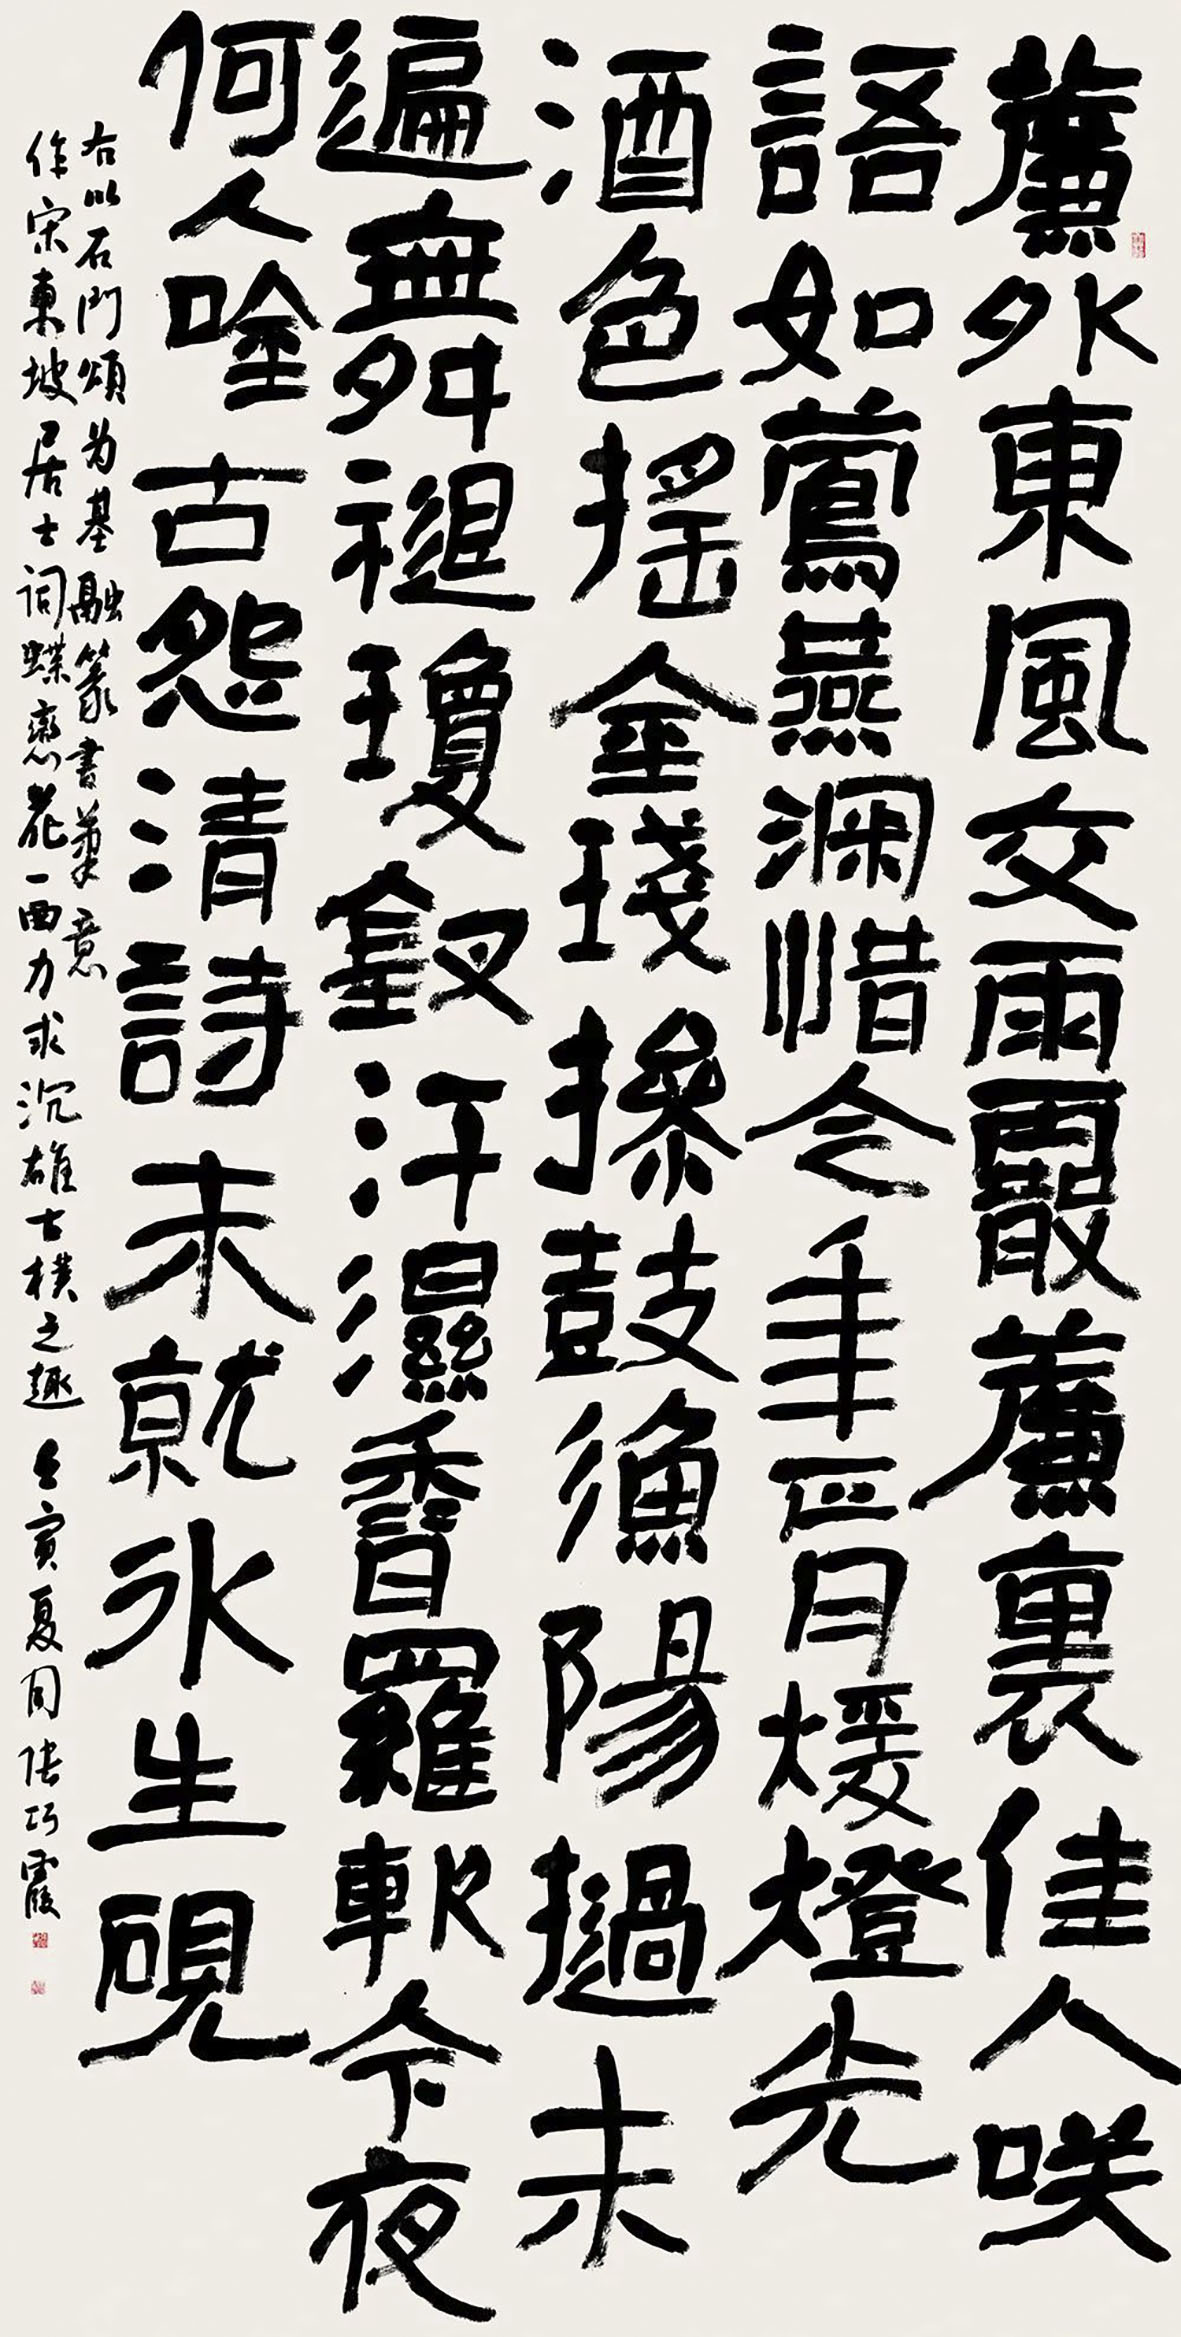 簾外東風交雨霰簾裏佳人咲
語如鶯燕深惜今年正月煖燈光
酒色搖金琖摻鼓漁陽撾未
遍舞褪瓊釵汗濕香羅軟今夜
何人唫古怨清詩未就冰生硯
右以石門頌为基融篆書筆意
作宋東坡居士詞蝶戀花一曲力求沉雄古樸之趣 壬寅夏張巧霞